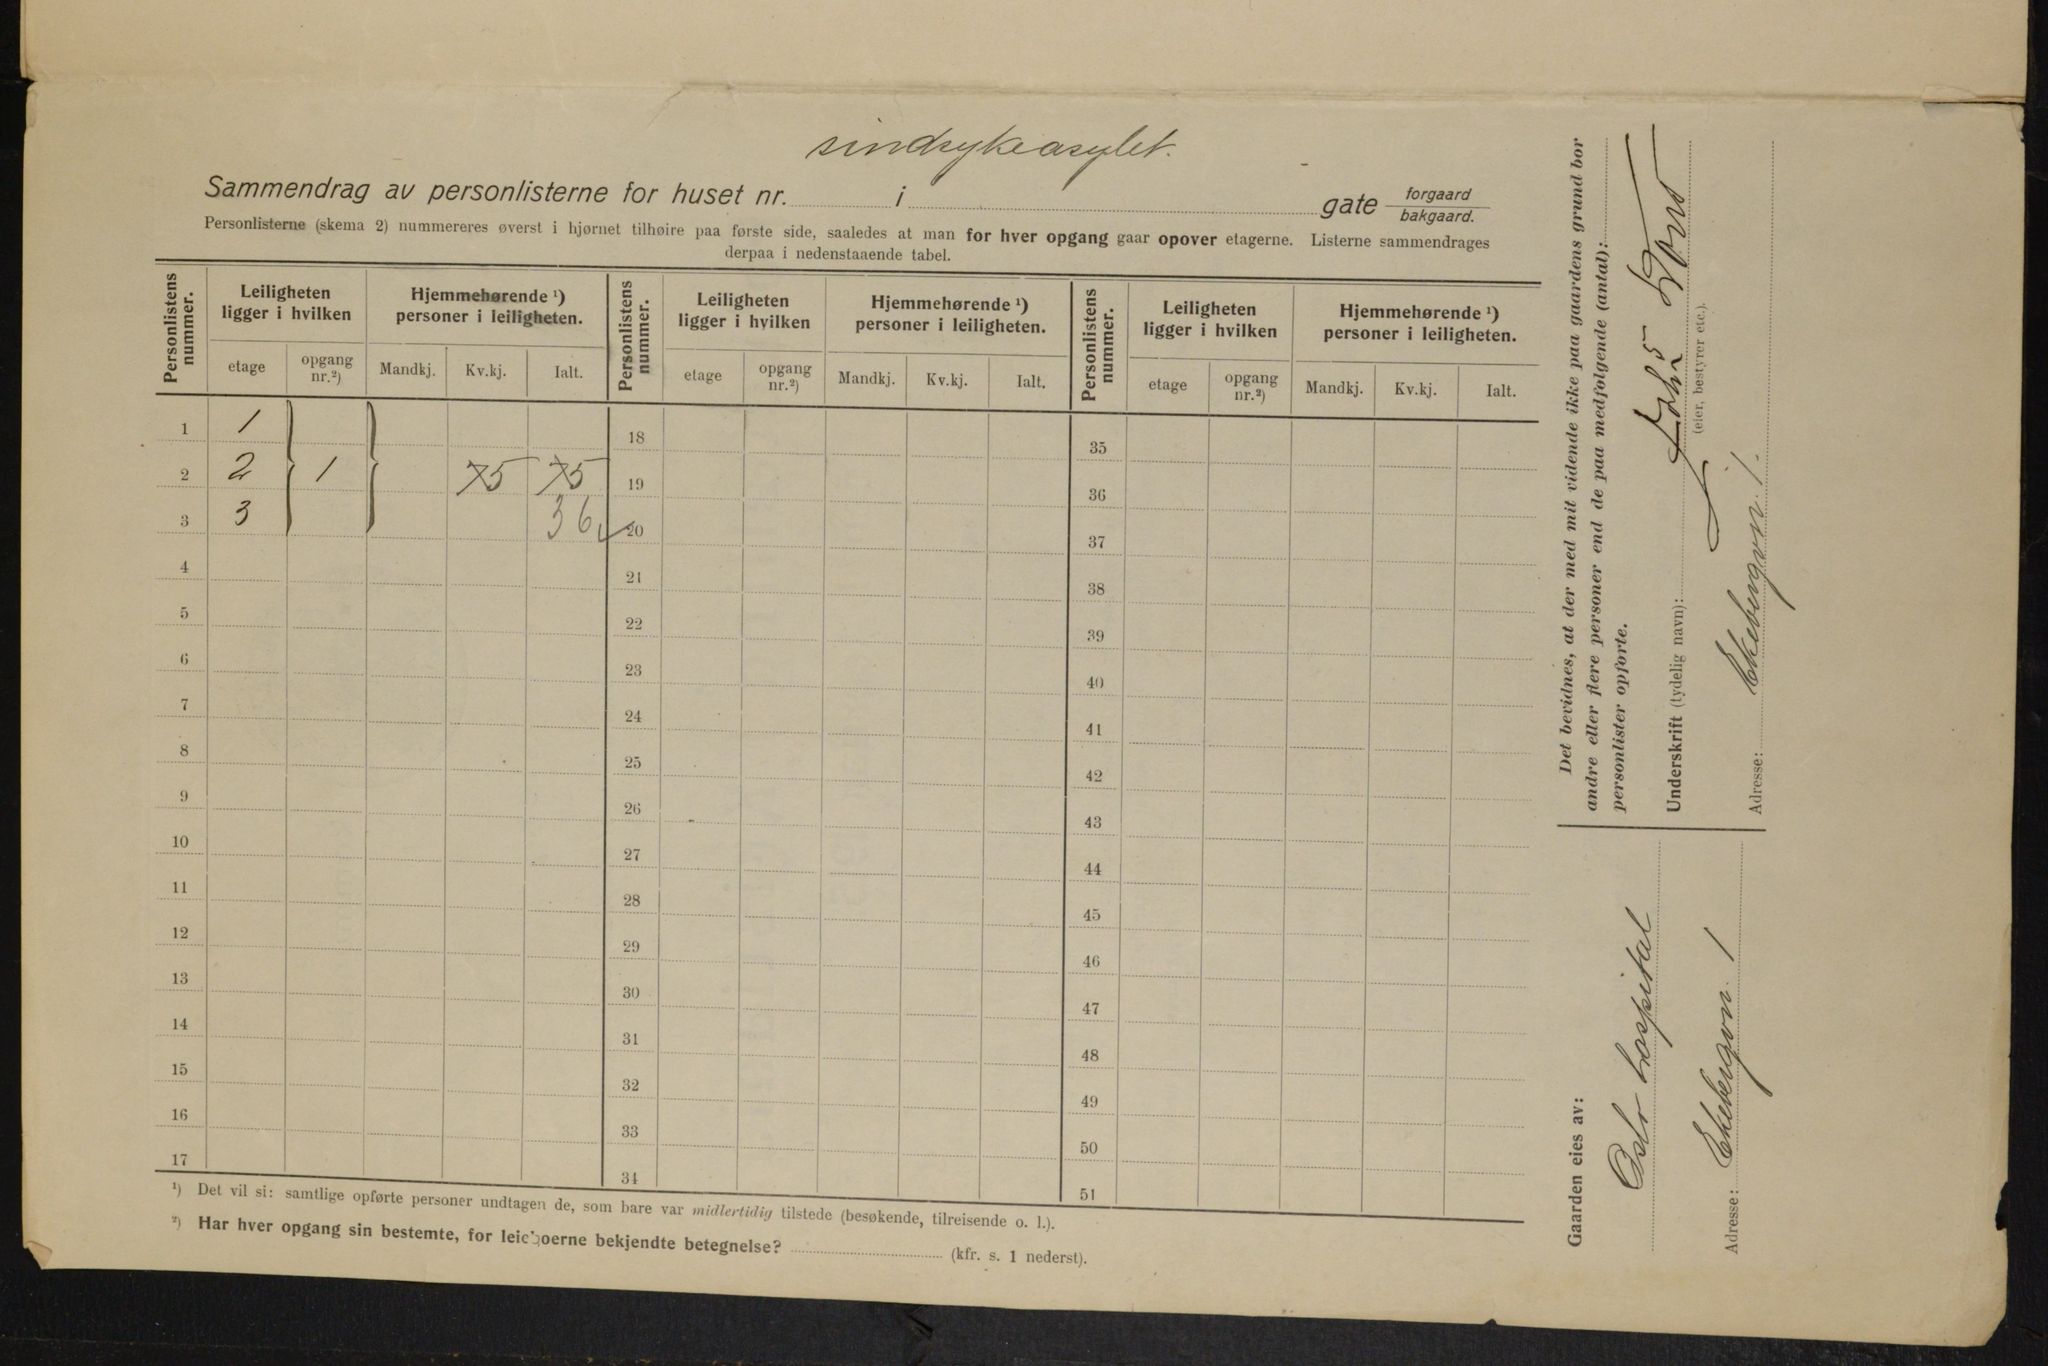 sindsykeasylet.
Sammendrag av personlisterne for huset nr. i gate forgaard
bakgaard.
Personlisterne (skema 2) nummereres øverst i hjørnet tilhøire paa første side, saaledes at man for hver opgang gaar opover etagerne. Listerne sammendrages
derpaa i nedenstaaende tabel.
Personlistens nummer. Leiligheten ligger i hvilken Hjemmehørende ¹) personer i leiligheten. Personlistens nummer. Leiligheten ligger i hvilken Hjemmehørende ¹) personer i leiligheten. Personlistens nummer. Leiligheten ligger i hvilken Hjemmehørende ¹) personer i leiligheten.
etage opgang nr.²) Mandkj. Kv.kj. Ialt. etage opgang nr.²) Mandkj. Kv.kj. Ialt. etage opgang nr.²) Mandkj. Kv.kj. Ialt.
1 1 18 35
2 2 1 75 75 19 36
3 3 36 20 37
4 21 38
5 22 39
6 23 40
7 24 41
8 25 42
9 26 43
10 27 44
11 28 45
12 29 46
13 30 47
14 31 48
15 32 49
16 33 50
17 34 51
¹) Det vil si: samtlige opførte personer undtagen de, som bare var midlertidig tilstede (besøkende, tilreisende o. l.).
²) Har hver opgang sin bestemte, for leieboerne bekjendte betegnelse? (kfr. s. 1 nederst).
Det bevidnes, at der med mit vidende ikke paa gaardens grund bor
andre eller flere personer end de paa medfølgende (antal):
personlister opførte.
Underskrift (tydelig navn):
(eier, bestyrer etc.).
Adresse: Ekebergvn. 1.
Gaarden eies av:
Oslo hospital
Adresse: Ekebergvn. 1